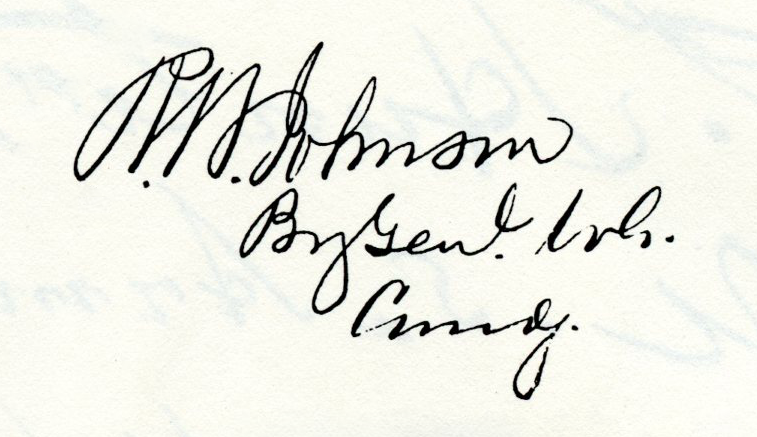 R.W. Johnson
By Genl. Vols.
Comdg.